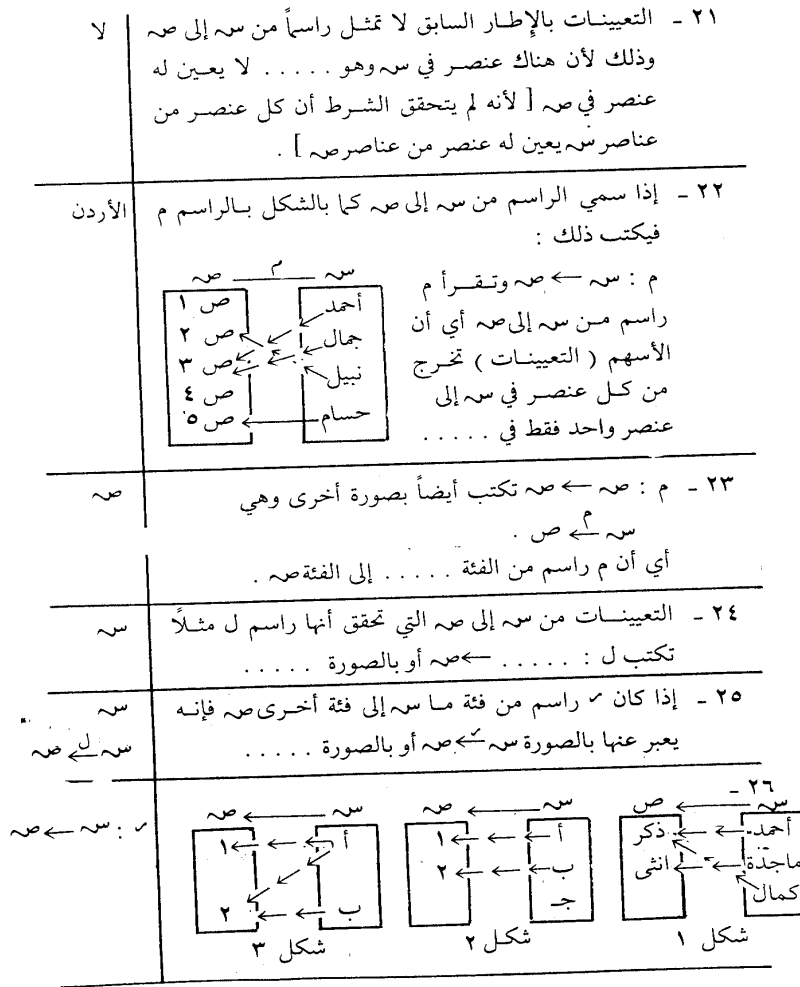 ٢١ ـ التعيينات بالإطار السابق لا تمثل راسماً من سہ إلى صہ
لا
وذلك لأن هناك عنصر في سہ وهو ..... لا يعين له
عنصر في صہ [ لأنه لم يتحقق الشرط أن كل عنصر من
عناصر سہ يعين له عنصر من عناصر صہ ] .
٢٢ ـ إذا سمي الراسم من سہ إلى صہ كما بالشكل بالراسم م
الأردن
فيكتب ذلك :
م : سہ ← صہ وتقرأ م
راسم من سہ إلى صہ أي أن
الأسهم ( التعيينات ) تخرج
من كل عنصر في سہ إلى
عنصر واحد فقط في .....
سہ م صہ
أحمد ص ١
جمال ص ٢
نبيل ص ٣
ص ٤
حسام ص ٥
٢٣ ـ م : صہ ← صہ تكتب أيضاً بصورة أخرى وهي
صہ
سہ م← ص .
أي أن م راسم من الفئة ..... إلى الفئة صہ .
٢٤ ـ التعيينات من سہ إلى صہ التي تحقق أنها راسم ل مثلًا
سہ
تكتب ل : ..... ← صہ أو بالصورة .....
٢٥ ـ إذا كان ر راسم من فئة ما سہ إلى فئة أخرى صہ فإنه
سہ
يعبر عنها بالصورة سہ ر← صہ أو بالصورة .....
سہ ل← صہ
٢٦ ـ
ر : سہ ← صہ
سہ ← ص
أحمد ذكر
ماجدة انثى
كمال
شكل ١
سہ ← صہ
أ ١
ب ٢
جـ
شكل ٢
سہ ← صہ
أ ١
ب ٢
شكل ٣